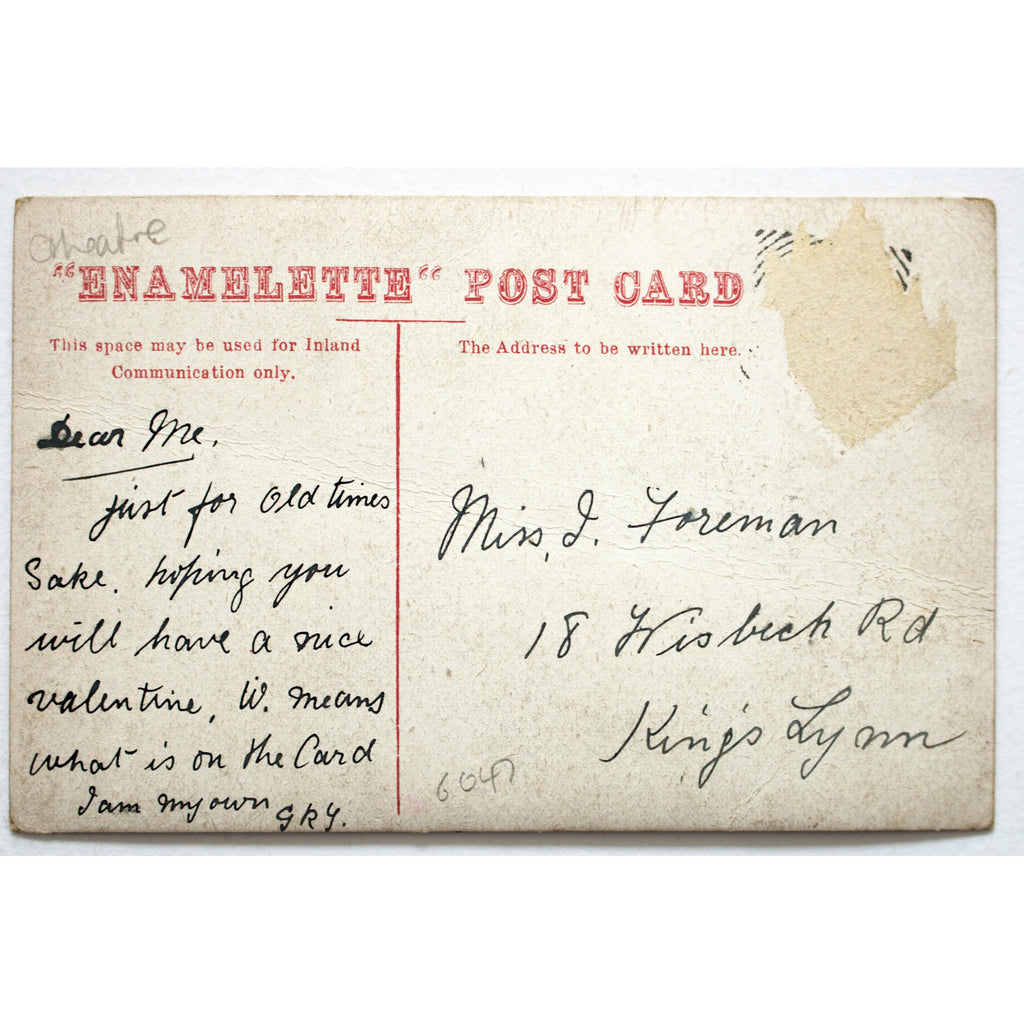 Theatre
"ENAMELETTE" POST CARD
This space may be used for Inland
Communication only.
The Address to be written here.
Dear Me,
just for old times
Sake. hoping you
will have a nice
valentine, W. means
what is on the Card
I am my own
Miss, I. Foreman
18 Wisbech Rd
King's Lynn
6047